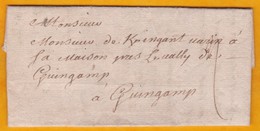 Monsieur
Monsieur de Kringant à
sa Maison près de
Guingamp
à Guingamp